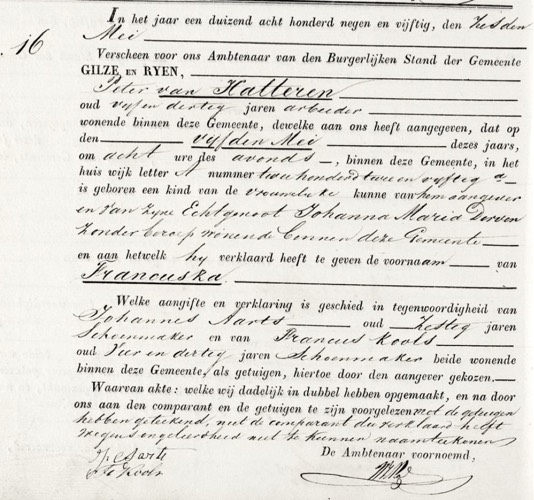 In het jaar een duizend acht honderd negen en vijftig, den Zesden
16
Mei
Verscheen voor ons Ambtenaar van den Burgerlijken Stand der Gemeente
GILZE EN RYEN,
Peter van Hatteren
oud vyf en derteg jaren arbeider
wonende binnen deze Gemeente, dewelke aan ons heeft aangegeven, dat op
den vyfden Mei dezes jaars,
om acht ure des avonds, binnen deze Gemeente, in het
huis wijk letter A nummer twee honderd twee en vyfteg a
is geboren een kind van de vrouwelyke kunne van hem aangever
en van zyne Echtgenoot Johanna Maria Dorven
zonder beroep wonende binnen deze Gemeente
en aan hetwelk hy verklaard heeft te geven de voornaam van
Francuska.
Welke aangifte en verklaring is geschied in tegenwoordigheid van
Johannes Aarts oud Zesteg jaren
Schoenmaker en van Francus Kools
oud Vier en derteg jaren Schoenmaker beide wonende
binnen deze Gemeente, als getuigen, hiertoe door den aangever gekozen.
Waarvan akte: welke wij dadelijk in dubbel hebben opgemaakt, en na door
ons aan den comparant en de getuigen te zijn voorgelezen met de getuigen
hebben geteekend, met de comparant du verklaard heeft
wegens ongeleerdheid niet te kunnen naamteekenen
De Ambtenaar voornoemd,
J. Aarts
F Kools